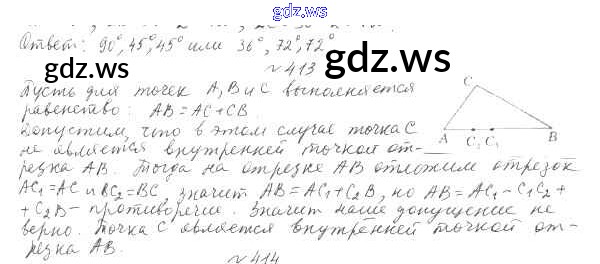 gdz.ws
Ответ: 90°, 45°, 45° или 36°, 72°, 72°
gdz.ws
gdz.ws
№ 413
Пусть для точек А, В и С выполняется
равенство: AB = AC + CB
Допустим, что в этом случае точка С
не является внутренней точкой от-
резка АВ. Тогда на отрезке АВ отложим отрезок
AC₁ = AC и BC₂ = BC, значит AB = AC₁ + C₂B, но AB = AC₁ - C₁C₂ +
+ C₂B - противоречие. Значит наше допущение не
верно. Точка С является внутренней точкой от-
резка АВ.
C
A
C₂
C₁
B
№ 414